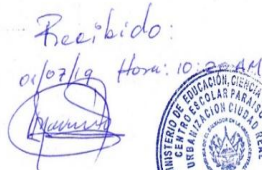 Recibido:
01/07/19 Hora: 10:20 AM
MINISTERIO DE EDUCACIÓN, CIENCIA
CENTRO ESCOLAR PARAISO
URBANIZACIÓN CIUDAD REAL